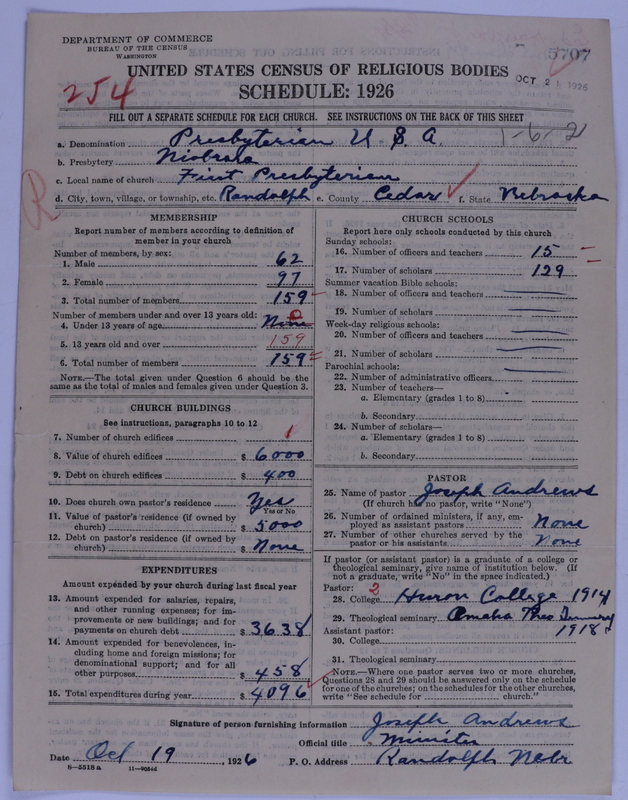 DEPARTMENT OF COMMERCE
BUREAU OF THE CENSUS
WASHINGTON
5707
UNITED STATES CENSUS OF RELIGIOUS BODIES
OCT 2 1926
254
SCHEDULE: 1926
FILL OUT A SEPARATE SCHEDULE FOR EACH CHURCH. SEE INSTRUCTIONS ON THE BACK OF THIS SHEET
a. Denomination Presbyterian U. S. A. 1-6-2
b. Presbytery Niobrara
c. Local name of church First Presbyterian
d. City, town, village, or township, etc. Randolph e. County Cedar f. State Nebraska
R
MEMBERSHIP
Report number of members according to definition of
member in your church
Number of members, by sex:
1. Male 62
2. Female 97
3. Total number of members 159
Number of members under and over 13 years old:
4. Under 13 years of age None 0
5. 13 years old and over 159
6. Total number of members 159
NOTE.—The total given under Question 6 should be the
same as the total of males and females given under Question 3.
CHURCH BUILDINGS
See instructions, paragraphs 10 to 12
7. Number of church edifices 1
8. Value of church edifices $ 6000
9. Debt on church edifices $ 400
10. Does church own pastor's residence Yes
Yes or No
11. Value of pastor's residence (if owned by
church) $ 5000
12. Debt on pastor's residence (if owned by
church) $ None
EXPENDITURES
Amount expended by your church during last fiscal year
13. Amount expended for salaries, repairs,
and other running expenses; for im-
provements or new buildings; and for
payments on church debt $ 3638
14. Amount expended for benevolences, in-
cluding home and foreign missions; for
denominational support; and for all
other purposes $ 458
15. Total expenditures during year $ 4096
CHURCH SCHOOLS
Report here only schools conducted by this church
Sunday schools:
16. Number of officers and teachers 15
17. Number of scholars 129
Summer vacation Bible schools:
18. Number of officers and teachers
19. Number of scholars
Week-day religious schools:
20. Number of officers and teachers
21. Number of scholars
Parochial schools:
22. Number of administrative officers
23. Number of teachers—
a. Elementary (grades 1 to 8)
b. Secondary
24. Number of scholars—
a. Elementary (grades 1 to 8)
b. Secondary
PASTOR
25. Name of pastor Joseph Andrews
(If church has no pastor, write "None")
26. Number of ordained ministers, if any, em-
ployed as assistant pastors None
27. Number of other churches served by the
pastor or his assistants None
If pastor (or assistant pastor) is a graduate of a college or
theological seminary, give name of institution below. (If
not a graduate, write "No" in the space indicated.)
Pastor: 2
28. College Huron College 1914
29. Theological seminary Omaha Theo Seminary
Assistant pastor: 1918
30. College
31. Theological seminary
NOTE.—Where one pastor serves two or more churches,
Questions 28 and 29 should be answered only on the schedule
for one of the churches; on the schedules for the other churches,
write "See schedule for church."
Signature of person furnishing information Joseph Andrews
Official title Minister
Date Oct 19, 1926 P. O. Address Randolph Nebr
8—5518 a 11—9564d